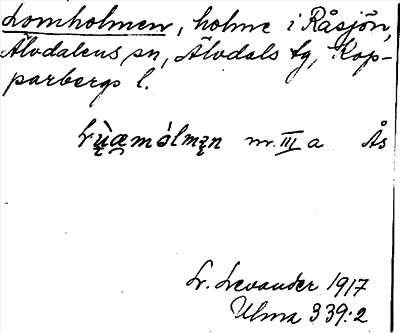 Lomholmen, holme i Råsjön,
Älvdalens sn, Älvdals tg, Kop-
parbergs l.
nr. III a Ås
L. Levander 1917
Ulma 339:2